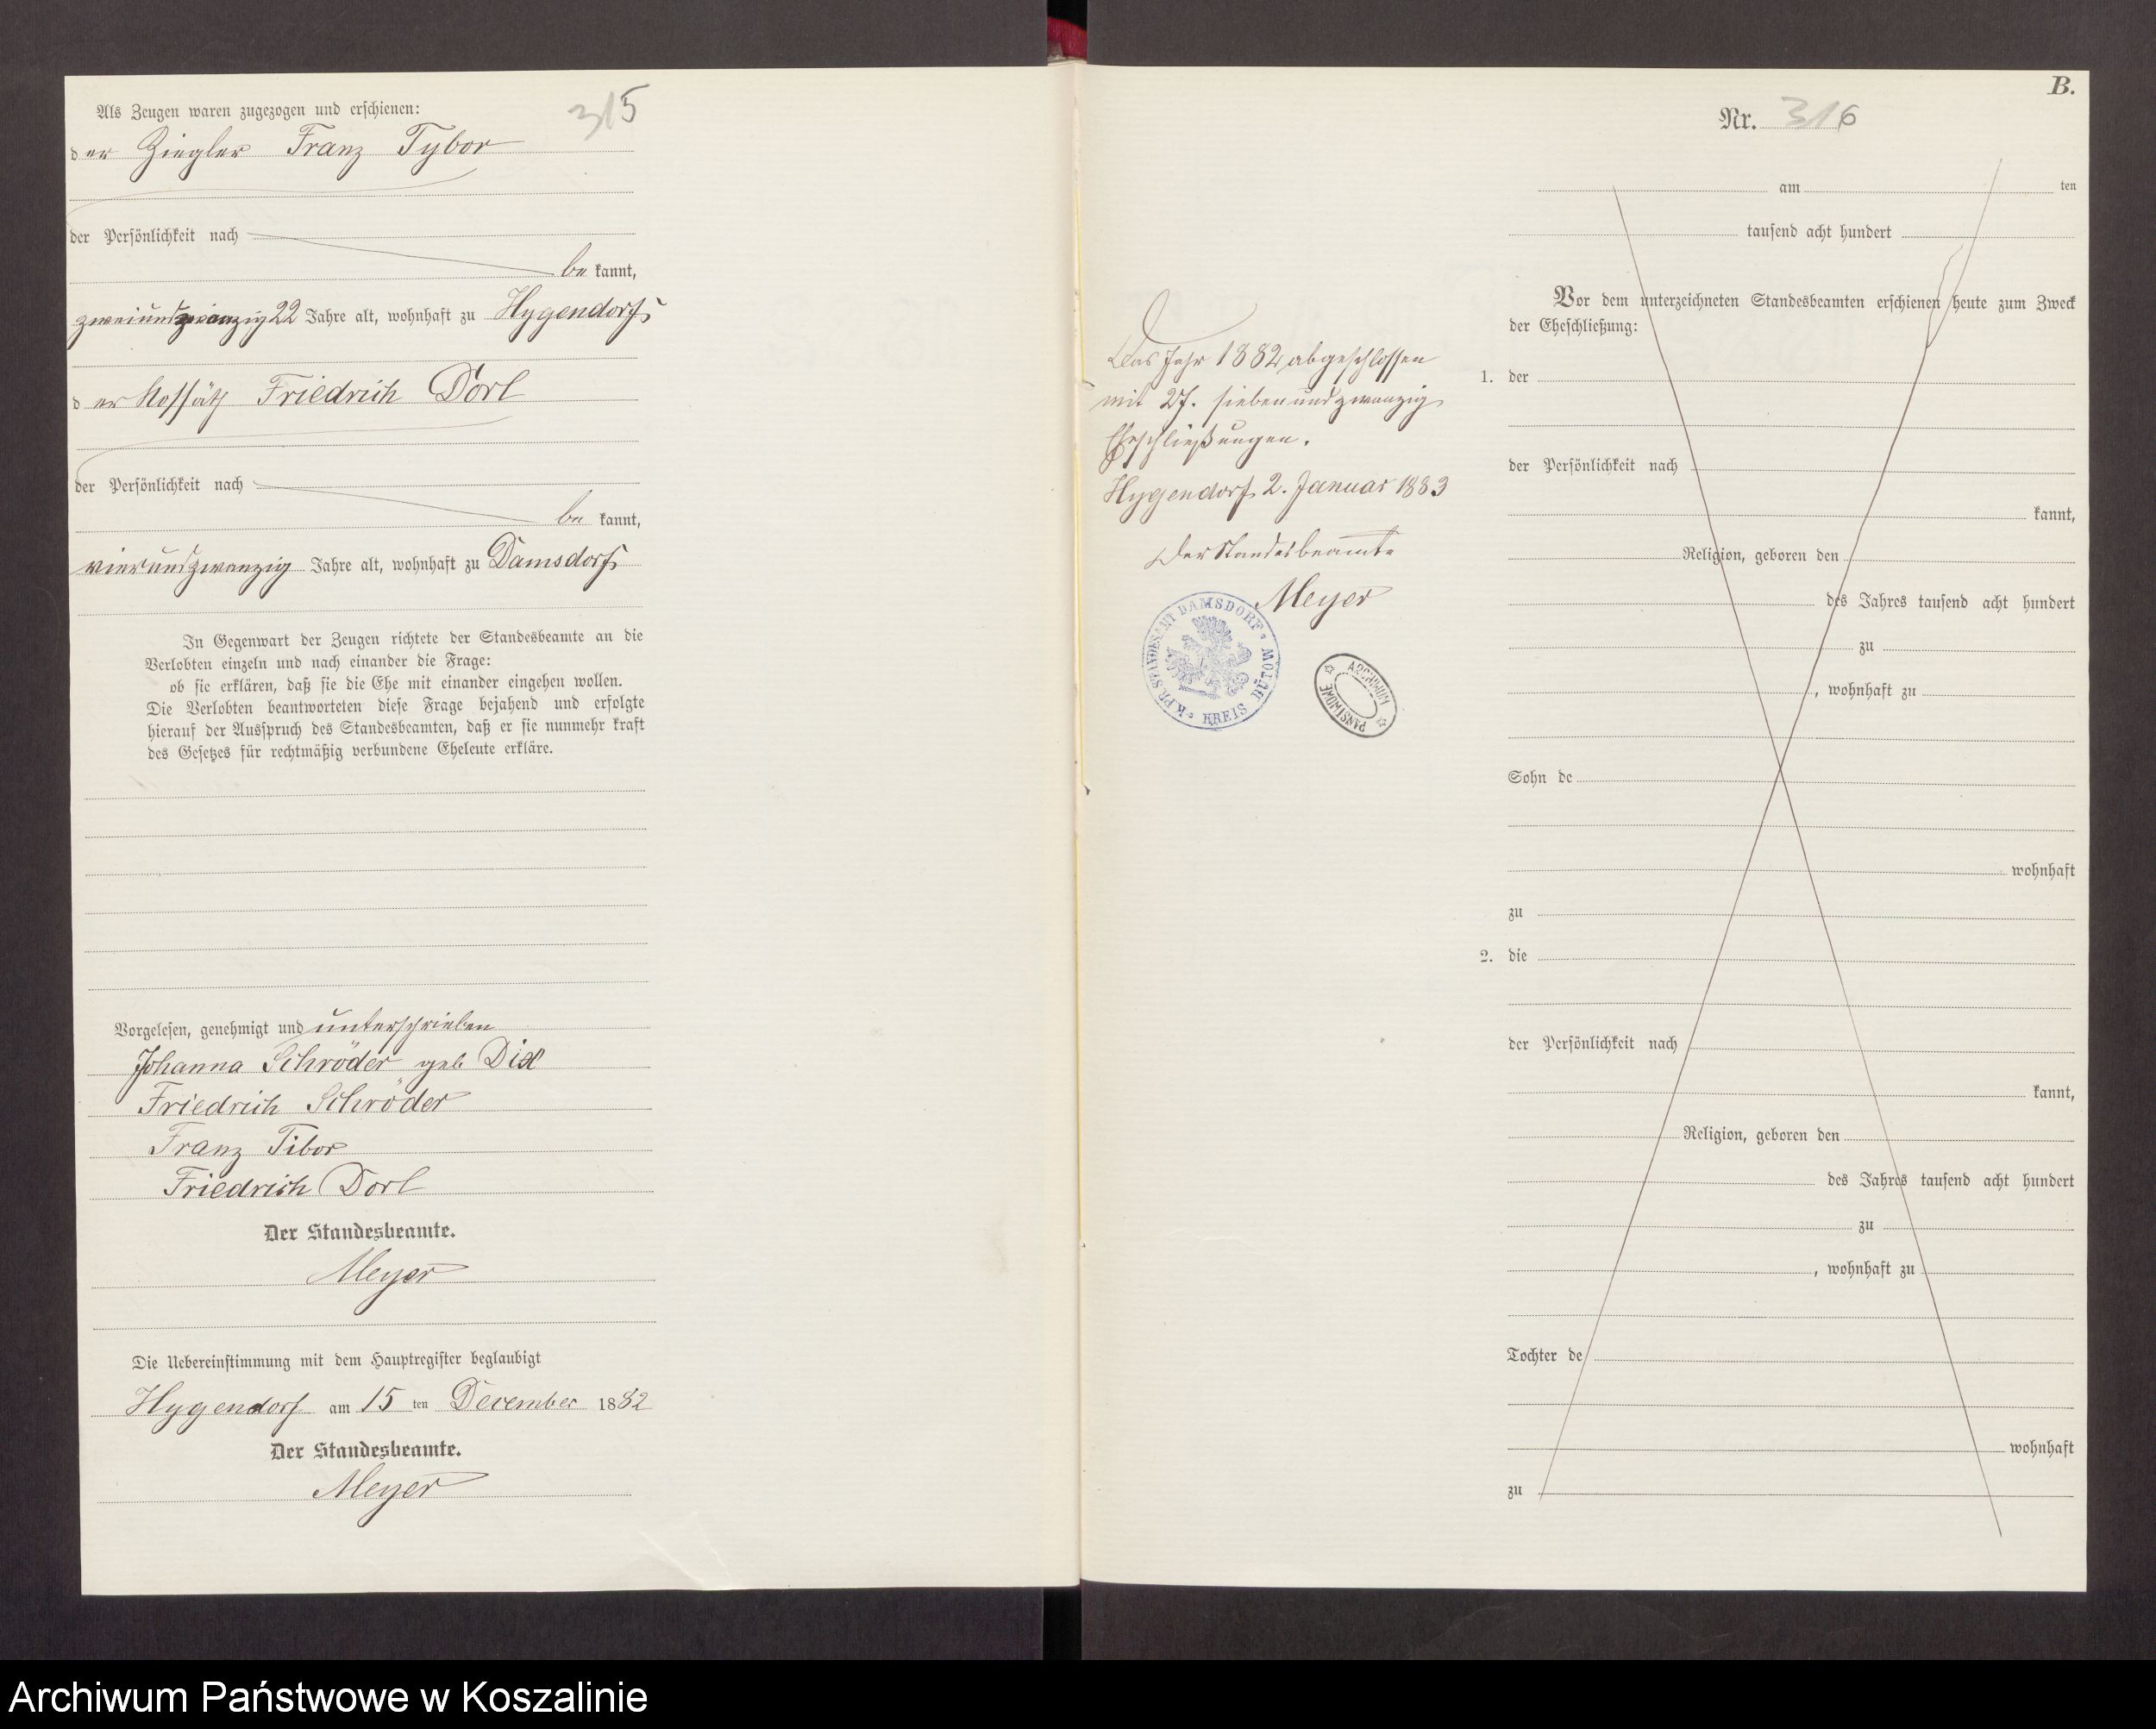 Als Zeugen waren zugezogen und erschienen:
315
der Ziegler Franz Tybor
der Persönlichkeit nach
be kannt,
zweiundzwanzig 22 Jahre alt, wohnhaft zu Hygendorf
der Kossäth Friedrich Dorl
der Persönlichkeit nach
be kannt,
vierundzwanzig Jahre alt, wohnhaft zu Damsdorf
In Gegenwart der Zeugen richtete der Standesbeamte an die
Verlobten einzeln und nach einander die Frage:
ob sie erklären, daß sie die Ehe mit einander eingehen wollen.
Die Verlobten beantworteten diese Frage bejahend und erfolgte
hierauf der Ausspruch des Standesbeamten, daß er sie nunmehr kraft
des Gesetzes für rechtmäßig verbundene Eheleute erkläre.
Vorgelesen, genehmigt und unterschrieben
Johanna Schröder geb
Friedrich Schröder
Franz Tibor
Friedrich Dorl
Der Standesbeamte.
Meyer
Die Uebereinstimmung mit dem Hauptregister beglaubigt
Hygendorf am 15 ten December 1882
Der Standesbeamte.
Meyer
Das Jahr 1882 abgeschlossen
mit 27. siebenundzwanzig
Eheschließungen.
Hygendorf 2. Januar 1883
Der Standesbeamte
Meyer
K. PR. STANDESAMT DAMSDORF
KREIS BÜTOW
ARCHIWUM
PAŃSTWOWE
B.
Nr. 316
am ten
tausend acht hundert
Vor dem unterzeichneten Standesbeamten erschienen heute zum Zweck
der Eheschließung:
1. der
der Persönlichkeit nach
kannt,
Religion, geboren den
des Jahres tausend acht hundert
zu
, wohnhaft zu
Sohn de
wohnhaft
zu
2. die
der Persönlichkeit nach
kannt,
Religion, geboren den
des Jahres tausend acht hundert
zu
, wohnhaft zu
Tochter de
wohnhaft
zu
Archiwum Państwowe w Koszalinie